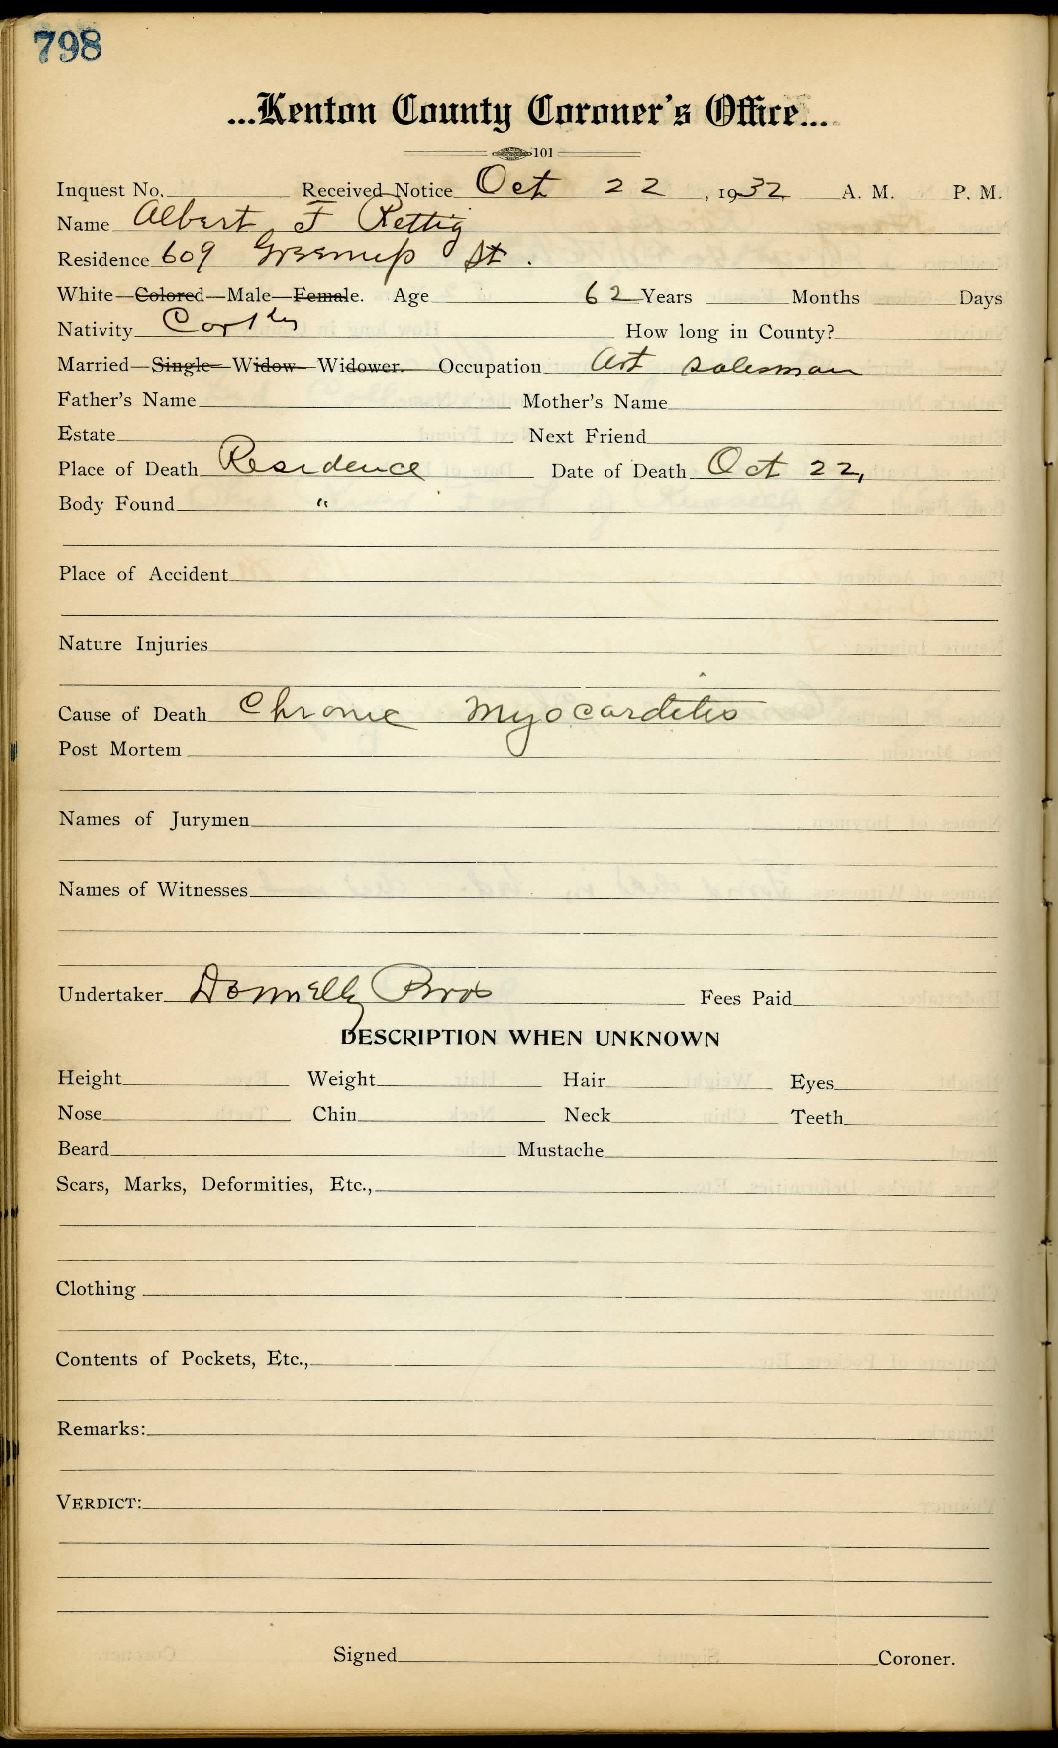 798
...Kenton County Coroner's Office...
101
Inquest No. Received Notice Oct 22, 1932 A. M. P. M.
Name Albert F Rettig
Residence 609 Greenup St.
White—Colored—Male—Female. Age 62 Years Months Days
Nativity How long in County?
Married—Single—Widow—Widower. Occupation Art salesman
Father's Name Mother's Name
Estate Next Friend
Place of Death Residence Date of Death Oct 22,
Body Found "
Place of Accident
Nature Injuries
Cause of Death Chronic Myocarditis
Post Mortem
Names of Jurymen
Names of Witnesses
Undertaker Donnelly Bros Fees Paid
DESCRIPTION WHEN UNKNOWN
Height Weight Hair Eyes
Nose Chin Neck Teeth
Beard Mustache
Scars, Marks, Deformities, Etc.,
Clothing
Contents of Pockets, Etc.,
Remarks:
VERDICT:
Signed Coroner.